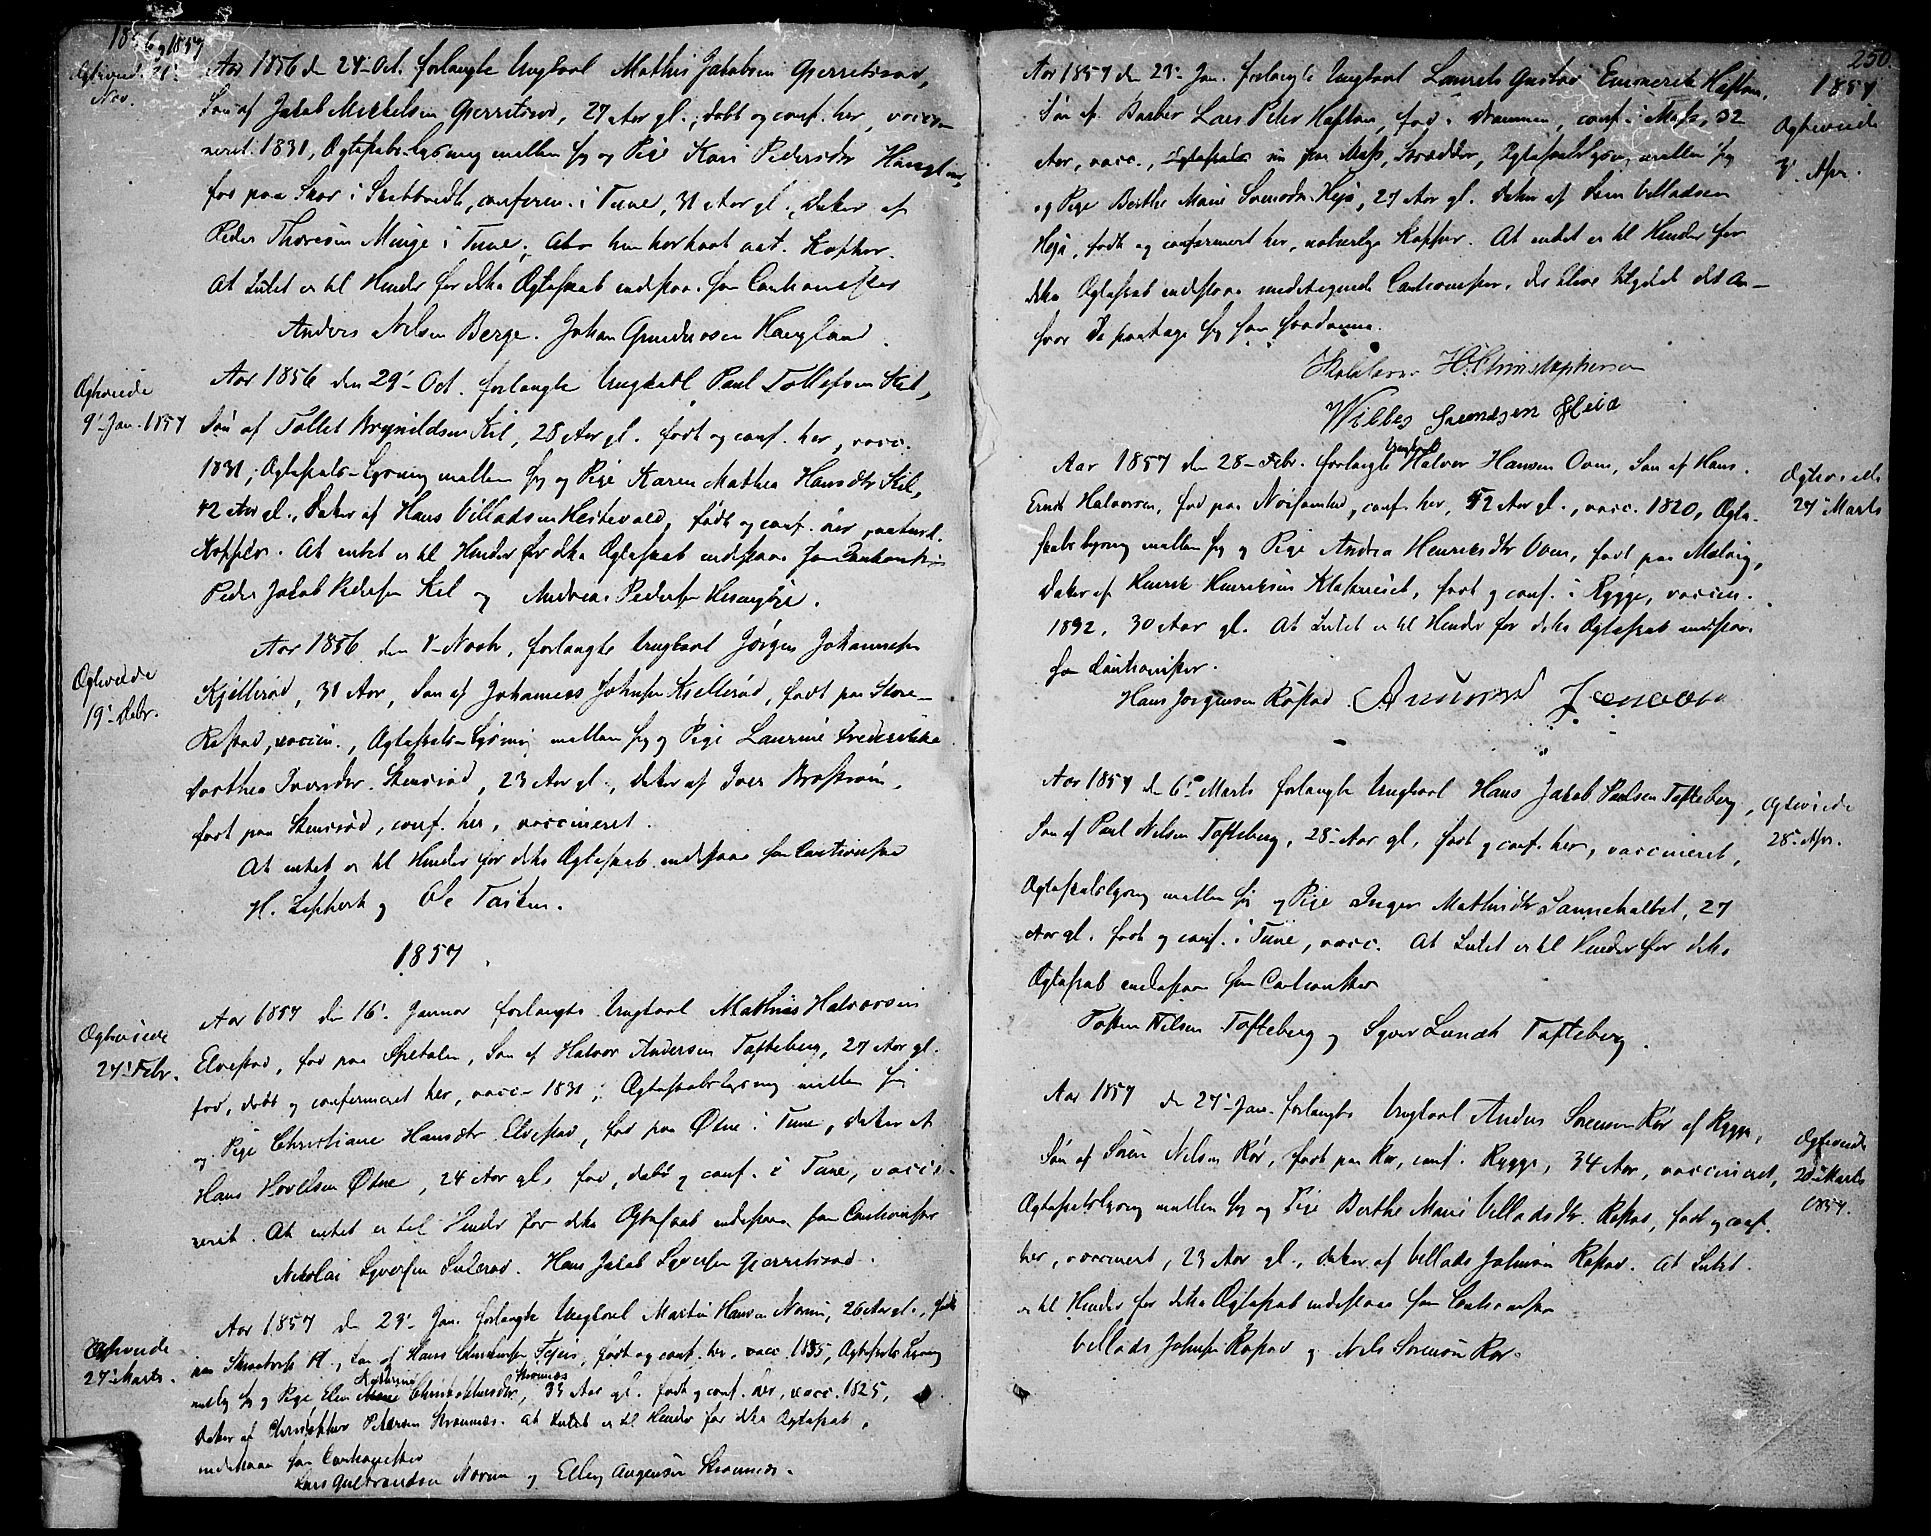 1856 og 1857
Ægteviede 21' Nov.
Aar 1856 den 24' Oct. forlangte Ungkarl Mathis Jakobsen Gjerritsrød,
Søn af Jakob Mikkelsen Gjerritsrød, 27 Aar gl., døbt og conf. her, vacci-
neret 1831, Ægteskabs-Lysning mellem sig og Pige Kari Pedersdtr
fød paa i Skibtvedt, conferm. i Tune, 31 Aar gl., Datter af
Peder Thoresen Minge i Tune, har havt nat. Kopper.
At Intet er til Hinder for dette Ægteskab indestaae som Cautionister
Anders Nilsen Berge. Johan Gundersen Haugland.
Ægteviede
9' Jan. 1857
Aar 1856 den 29' Oct. forlangte Ungkarl Paul Tollefsen Kil,
Søn af Tollef Brynildsen Kil, 28 Aar gl. født og conf. her, vacc.
1831, Ægteskabs-Lysning mellem sig og Pige Karen Mathea Hansdtr Kil,
42 Aar gl., Datter af Hans Villadsen Hestevold, født og conf. her, naturl.
Kopper. At intet er til Hinder for dette Ægteskab indestaae som Cautionister
Peder Jakob Pedersen Kil og Andreas Pedersen
Ægteviede
19' Febr.
Aar 1856 den Novbr. forlangte Ungkarl Jørgen Johannesen
Kjellerød, 31 Aar, Søn af Johannes Johnsen Kjellerød, født paa Store-
Røstad, vaccin., Ægteskabs-Lysning mellem sig og Pige Laurine Frederikke
Dorthea Iversdtr. Stensrød, 23 Aar gl., Datter af Iver
født paa Stensrød, conf. her, vaccineret.
At intet er til Hinder for dette Ægteskab indestaae som Cautionister
H. og Ole
1857.
Ægteviede
27' Febr.
Aar 1857 den 16' Januar forlangte Ungkarl Mathias Halvorsen
Elvestad, fød paa Spetalen, Søn af Halvor Andersen Tofteberg, 27 Aar gl.
fød, døbt og confirmeret her, vacc. 1831; Ægteskabslysning mellem sig
og Pige Christiane Hansdtr Elvestad, fød paa Østne i Tune, Datter af
Hans Hovelsen Østne, 24 Aar gl., fød, døbt og conf. i Tune, vacci-
neret. At intet er til Hinder for dette Ægteskab indestaae som Cautionister
Nikolai Syversen Hans Jakob Syversen Gjerritsrød.
Ægteviede
27' Marts.
Aar 1857 den 23' Jan. forlangte Ungkarl Martin Hansen Norum, 26 Aar gl., født
paa Skraatorp Pl., Søn af Hans født og conf. her, vacc. 1835, Ægteskabs Lysning
mellem sig og Pige Elen Christophersdtr, 33 Aar gl. født og conf. her, vacc. 1825,
Datter af Christopher Petersen At Intet er til Hinder for dette Ægteskab,
indestaae som Cautionister
Lars Gulbrandsen Norum og
250
1857
Ægteviede
3' Apr.
Aar 1857 den 23' Jan. forlangte Ungkarl Laurets Gustav Emmerik Haftom,
Søn af Barber Lars Peter Haftom, fød i Drammen, conf. i Moss, 32
Aar, vacc., nu paa Moss, Skrædder, Ægteskabslysning mellem sig
og Pige Berthe Marie Svendsdtr Heja, 27 Aar gl. Datter af Svend Villadsen
Heja, født og confirmert her, naturlige Kopper. At intet er til Hinder for
dette Ægteskab indestaae undertegnede Cautionister, der blive Skyldet det An-
svar de paatage sig som saadanne.
Skolelærer H. Christophersen
Willes Svendsen Heia
Ægteviede
27' Marts
Aar 1857 den 28' Febr. forlangte Ungkarl Halvor Hansen Oven, Søn af Hans
Ernst Halvorsen, fød paa conf. her, 42 Aar gl., vacc. 1820, Ægte-
skabs lysning mellem sig og Pige Andrea Henriksdtr Oven, født paa
Datter af Henrik Henriksen født og conf. i Rygge, vaccin.
1832, 30 Aar gl. At Intet er til Hinder for dette Ægteskab indestaae
som Cautionister.
Hans Jørgensen Røstad. Amund Jensen
Ægteviede
28' Apr.
Aar 1857 den 6' Marts forlangte Ungkarl Hans Jakob Paulsen Tofteberg,
Søn af Paul Nilsen Tofteberg, 28 Aar gl., født og conf. her, vaccineret,
Ægteskabslysning mellem sig og Pige Inger Mathisdtr Sannehaltet, 27
Aar gl. født og conf. i Tune, vacc. At Intet er til Hinder for dette
Ægteskab indestaae som Cautionister
Nilsen Tofteberg og Syver Lundt Tofteberg.
Ægteviede
20' Marts
1857.
Aar 1857 den 27' Jan. forlangte Ungkarl Anders Sørensen Rør af Rygge,
Søn af Søren Nilsen Rør, født paa Rør, conf. Rygge, 34 Aar, vaccineret,
Ægteskabslysning mellem sig og Pige Berthe Marie Villadsdtr. Røstad, født og conf.
her, vaccineret, 23 Aar gl., Datter af Villads Johnsen Røstad. At Intet
er til Hinder for dette Ægteskab indestaae som Cautionister
Villads Johnsen Røstad og Nils Sørensen Rør.